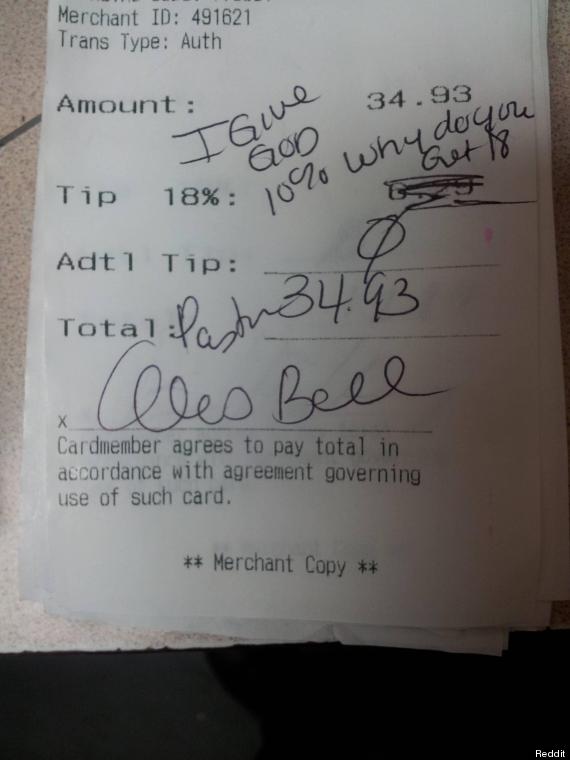 Merchant ID: 491621
Trans Type: Auth
Amount: 34.93
I Give
God
10% why do you
Get 18
Tip 18%:
Adtl Tip: 0
Total: Pastor 34.93
x Bell
Cardmember agrees to pay total in
accordance with agreement governing
use of such card.
** Merchant Copy **
Reddit